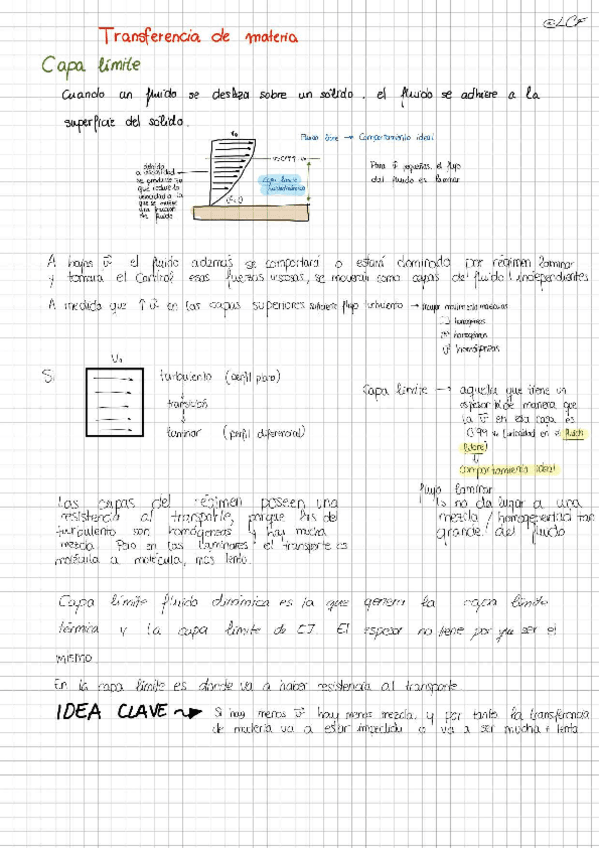 @LCF
Transferencia de materia
Capa límite
Cuando un fluido se desliza sobre un sólido, el fluido se adhiere a la
superficie del sólido.
Flujo libre → Comportamiento ideal
debido
a viscosidad
se produce
que reduce la
velocidad a la
que se mueve
fluido
Capa límite
v=0
Para v⃗ pequeñas, el flujo
del fluido es laminar
A bajas v⃗ el fluido además se comportará o estará dominado por régimen laminar
y tomará el control esas fuerzas viscosas, se moverán como capas del fluido independientes
A medida que ↑ v⃗ en las capas superiores flujo turbulento →
homogéneas
v⃗ homogéneas
Si
turbulento (perfil plano)
↓
transición
↓
laminar (perfil diferencial)
Capa límite → aquella que tiene un
espesor de manera que
la v⃗ en esa capa es
0'99 velocidad en el
(libre)
comportamiento ideal
flujo laminar
↳ no da lugar a una
mezcla / homogeneidad tan
grande del fluido
Las capas del régimen poseen una
resistencia al transporte, porque las del
turbulento son homogéneas y hay mucha
mezcla. Pero en las laminares el transporte es
molécula a molécula, más lento.
Capa límite fluido dinámica es la que genera la capa límite
térmica y la capa límite de El espesor no tiene por que ser el
mismo.
En la capa límite es donde va a haber resistencia al transporte
IDEA CLAVE → Si hay menos v⃗ hay menos mezcla, y por tanto la transferencia
de materia va a estar impedida o va a ser mucho + lenta